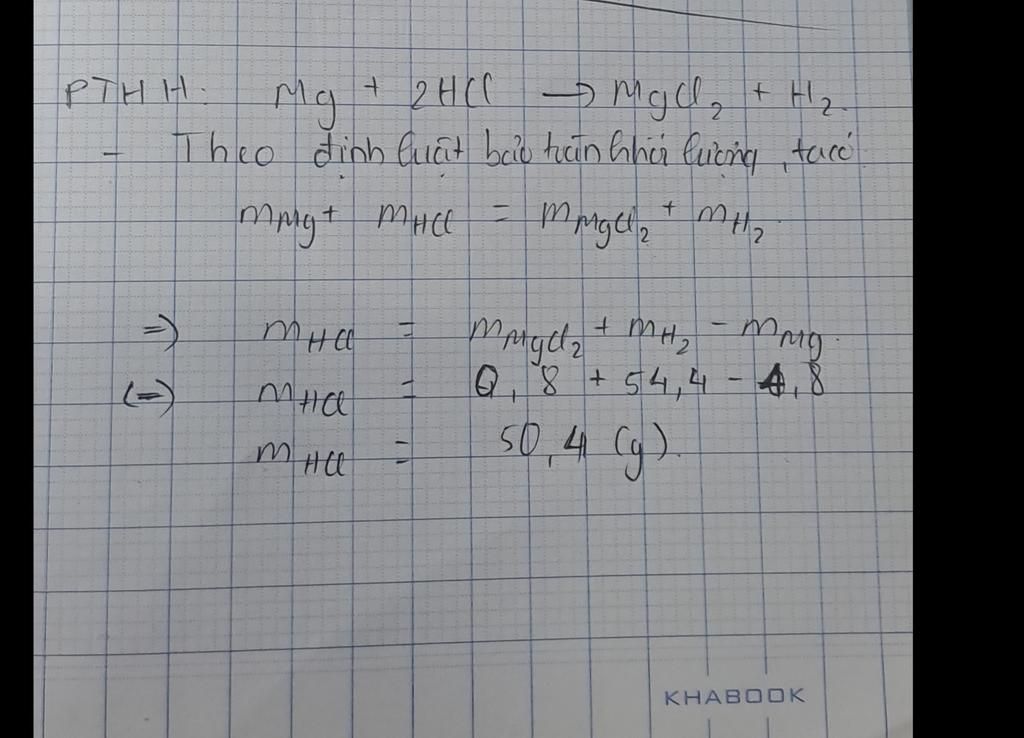 PTHH: Mg + 2HCl → MgCl₂ + H₂.
- Theo định luật bảo toàn khối lượng, ta có
mMg + mHCl = mMgCl₂ + mH₂.
=> mHCl = mMgCl₂ + mH₂ - mMg.
(=) mHCl = 0,8 + 54,4 - 4,8
mHCl = 50,4 (g).
KHABOOK